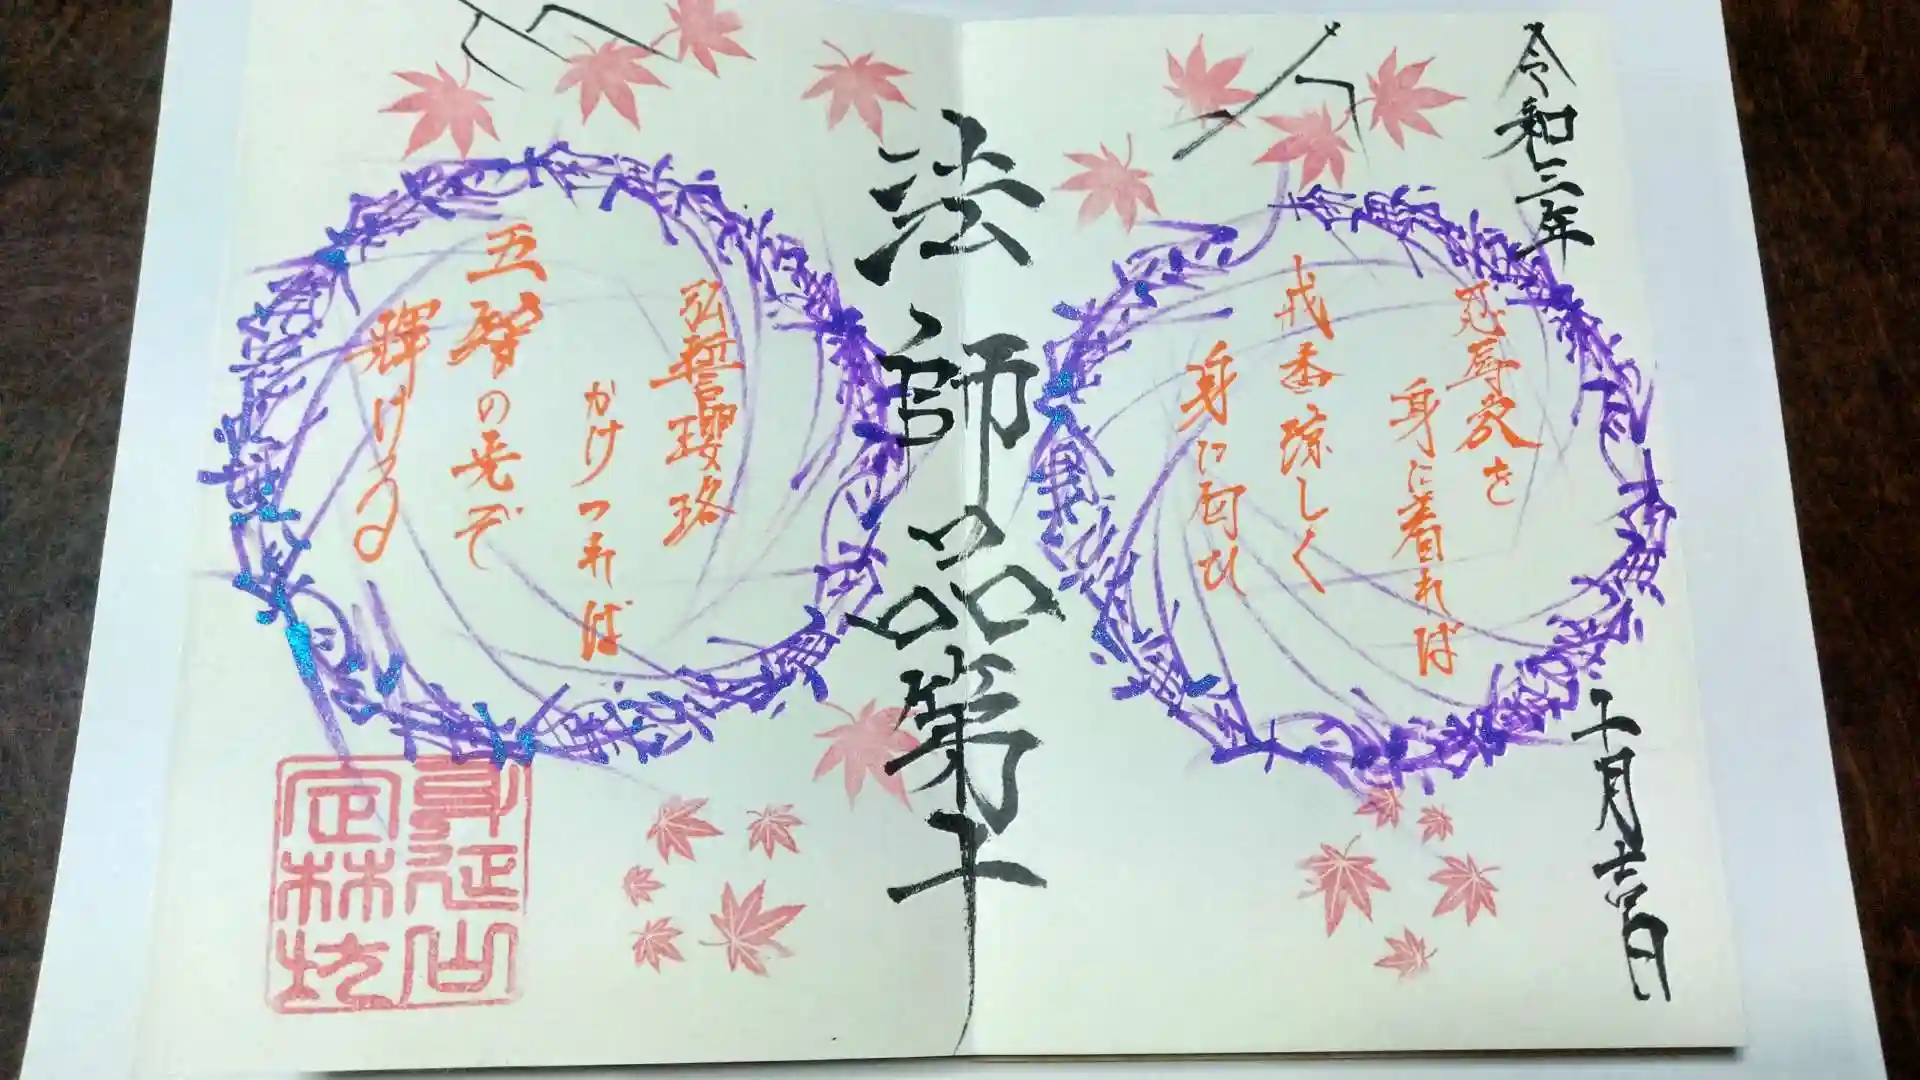 令和三年
十一月吉日
忍辱衣を
身に着れば
戒香涼しく
身に匂ひ
法師品第十
弘誓瓔珞
かけつれば
五智の光ぞ
輝ける
身延山
定林坊